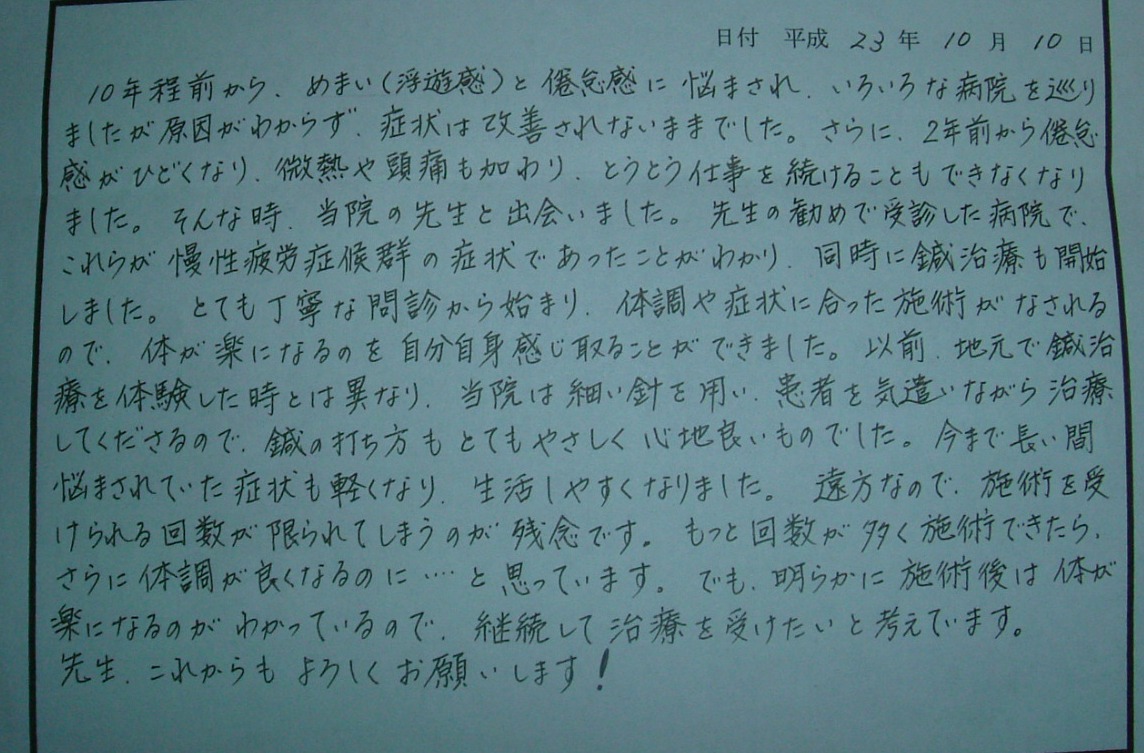 日付 平成 23 年 10 月 10 日
10年程前から、めまい(浮遊感)と倦怠感に悩まされ、いろいろな病院を巡り
ましたが原因がわからず、症状は改善されないままでした。さらに、2年前から倦怠
感がひどくなり、微熱や頭痛も加わり、とうとう仕事を続けることもできなくなり
ました。そんな時、当院の先生と出会いました。先生の勧めで受診した病院で、
これらが慢性疲労症候群の症状であったことがわかり、同時に鍼治療も開始
しました。とても丁寧な問診から始まり、体調や症状に合った施術がなされる
ので、体が楽になるのを自分自身感じ取ることができました。以前、地元で鍼治
療を体験した時とは異なり、当院は細い針を用い、患者を気遣いながら治療
してくださるので、鍼の打ち方もとてもやさしく心地良いものでした。今まで長い間
悩まされていた症状も軽くなり、生活しやすくなりました。遠方なので、施術を受
けられる回数が限られてしまうのが残念です。もっと回数が多く施術できたら、
さらに体調が良くなるのに‥‥と思っています。でも、明らかに施術後は体が
楽になるのがわかっているので、継続して治療を受けたいと考えています。
先生、これからもよろしくお願いします!